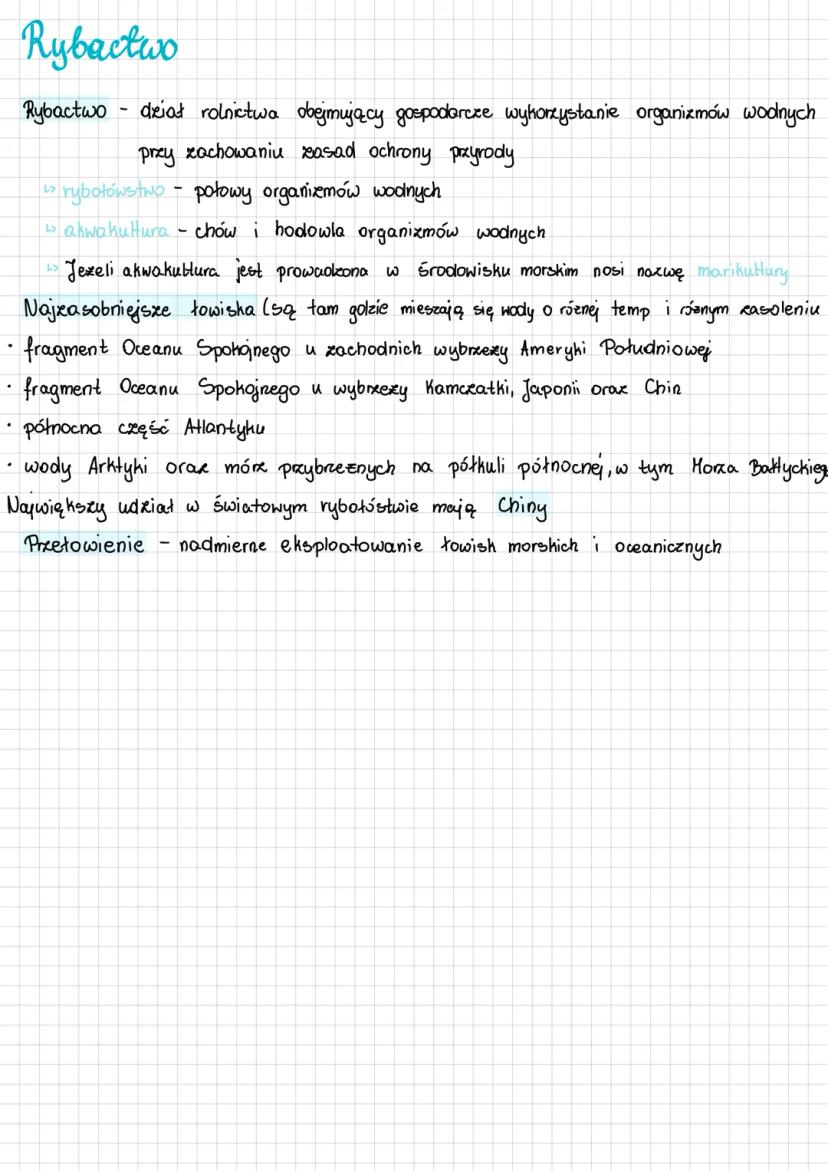 Rybactwo
Rybactwo - dział rolnictwa obejmujący gospodarcze wykorzystanie organizmów wodnych
przy zachowaniu zasad ochrony przyrody
↳ rybołówstwo - połowy organizmów wodnych
↳ akwakultura - chów i hodowla organizmów wodnych
↳ Jeżeli akwakubtura jest prowadzona w środowisku morskim nosi nazwę marikultury
Najzasobniejsze łowiska (są tam gdzie mieszają się wody o różnej temp i róznym zasoleniu
• fragment Oceanu Spokojnego u zachodnich wybrzeży Ameryki Południowej
• fragment Oceanu Spokojnego u wybrzeży Kamczatki, Japonii oraz Chin
• północna część Atlantyku
• wody Arktyki oraz mórz przybrzeżnych na półkuli północnej, w tym Morza Bałtyckieg
Największy udział w światowym rybołóstwie mają Chiny
Przełowienie - nadmierne eksploatowanie łowisk morskich i oceanicznych